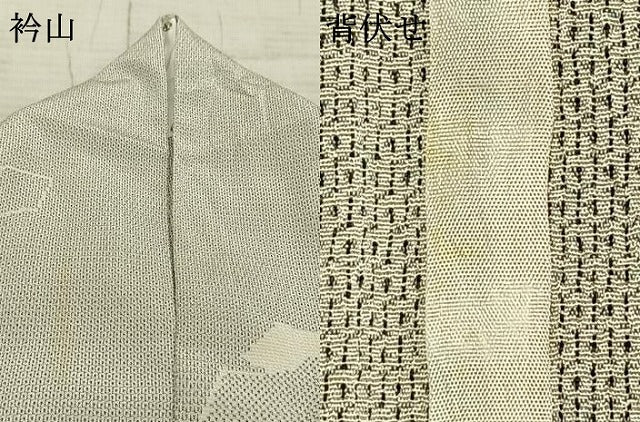 衿山
背伏せ